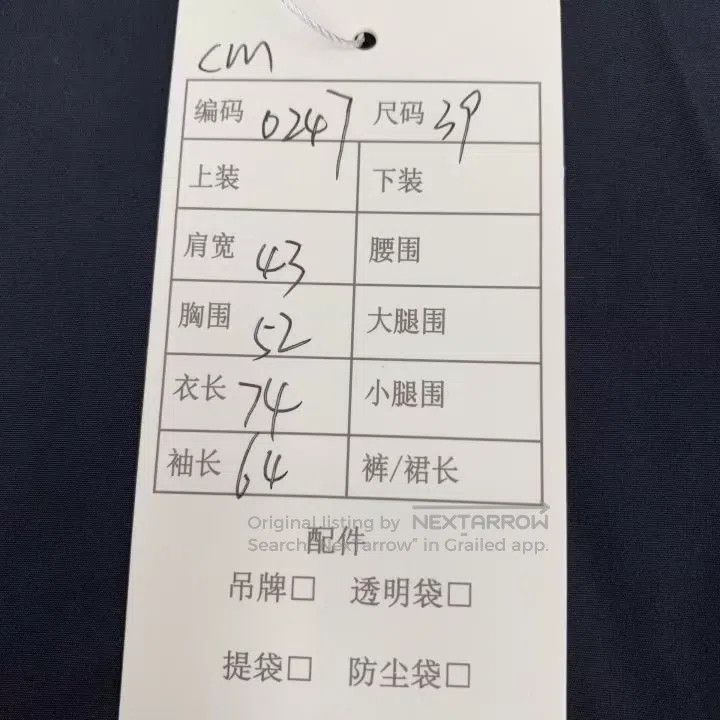 CM
编码 0247 尺码 39
上装 下装
肩宽 43 腰围
胸围 52 大腿围
衣长 74 小腿围
袖长 64 裤/裙长
Original listing by NEXTARROW
Search "NextArrow" in Grailed app.
配件
吊牌□ 透明袋□
提袋□ 防尘袋□